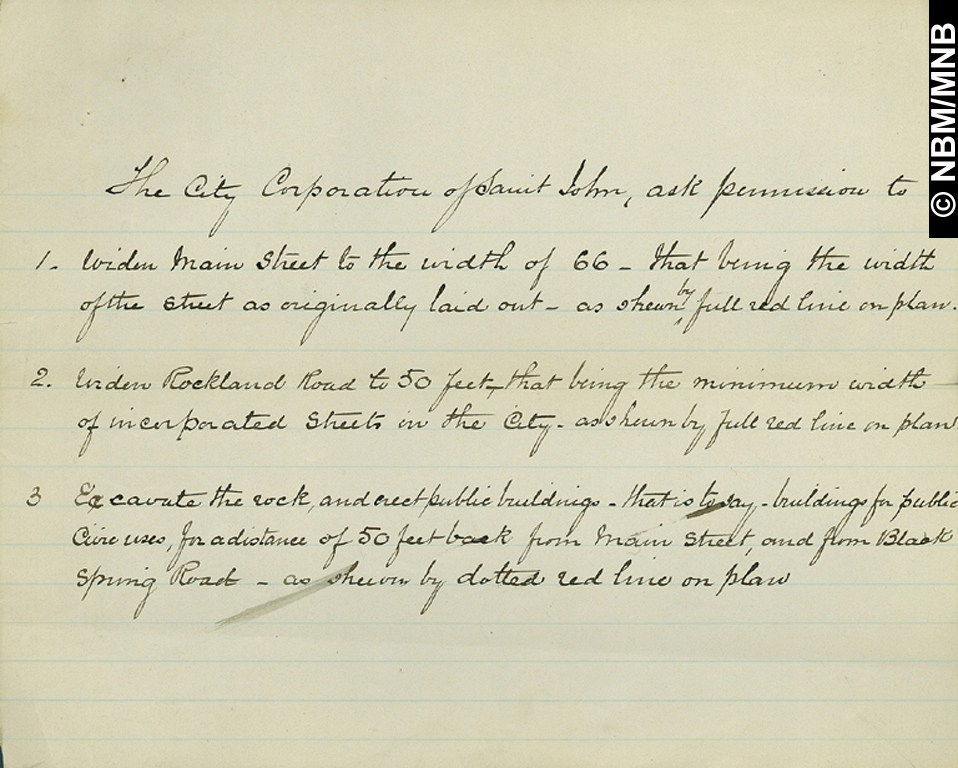 The City Corporation of Saint John, ask permission to
1. Widen Main Street to the width of 66 - that being the width
of the street as originally laid out - as shewn by full red line on plan.
2. Widen Rockland Road to 50 feet, that being the minimum width
of incorporated Streets in the City - as shewn by full red line on plan
3 Excavate the rock, and erect public buildings - that is to say, - buildings for public
Civic uses, for a distance of 50 feet back from Main Street, and from Black
Spring Road - as shewn by dotted red line on plan
© NBM/MNB